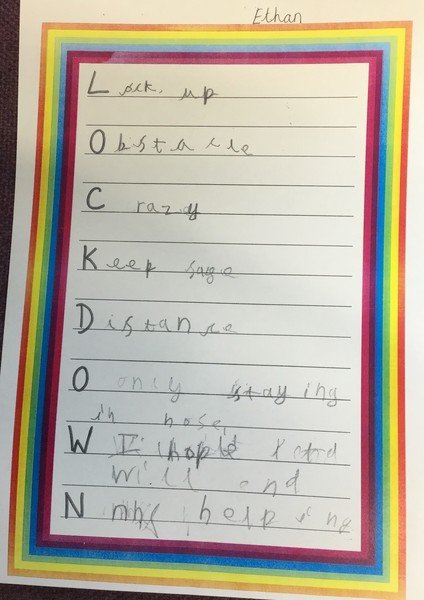 Ethan
Lock up
Obstacle
Crazy
Keep sage
Distance
Only staying
in hose
W I hople
will end
N helping